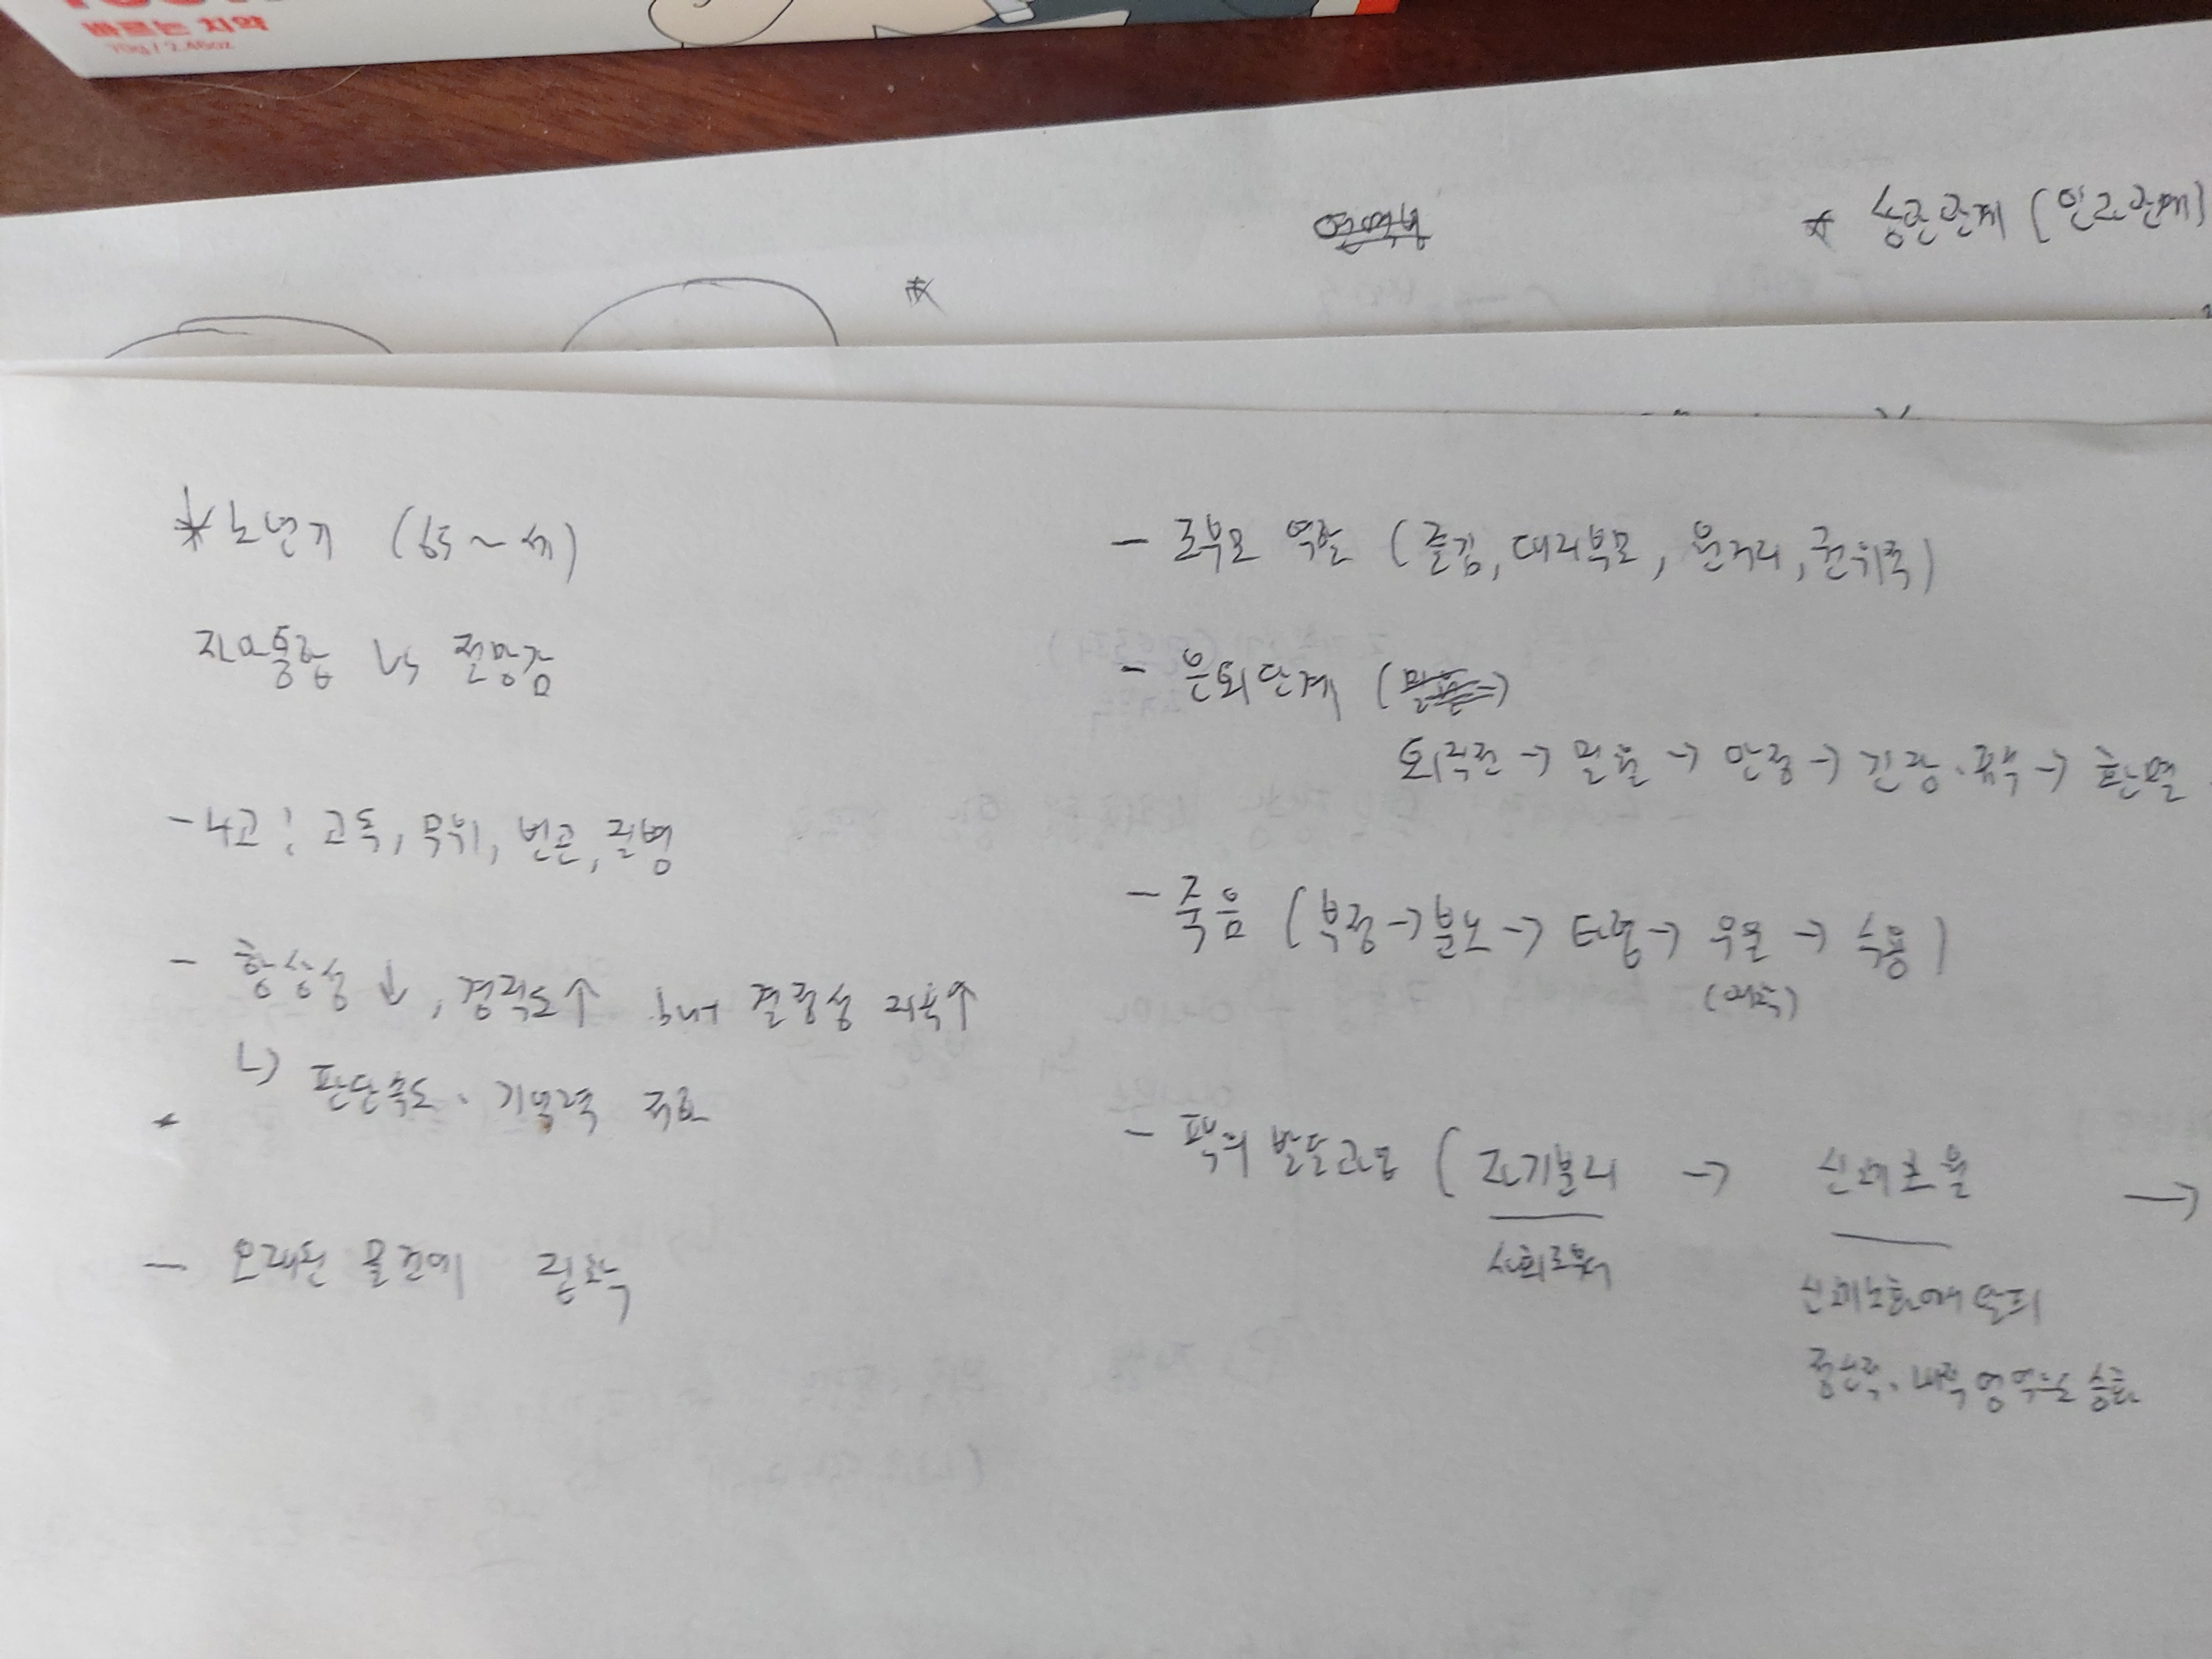 바르는 치약
70g / 2.46oz
* 상관관계 (인과관계)
*
* 노년기 (65~세)
자아통합 vs 절망감
- 4고 : 고독, 무위, 빈곤, 질병
- 항상성 ↓, 경직도↑ but 결정성 지능↑
↳ 판단속도 · 기억력 쇠퇴
- 오래된 물건에 집착
- 조부모 역할 (즐김, 대리부모, 원거리, 권위적)
- 은퇴단계 (
퇴직전 → 밀월 → 안정 → 긴장 · → 환멸
- 죽음 (부정 → 분노 → 타협 → 우울 → 수용)
- 펙의 발달과업 ( 자기분리 → 신체초월 →
사회로부터
신체노화에
정신적 · 내적 영역으로 승화